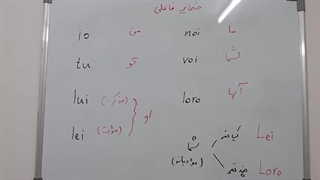 ضمایر فاعلی
io من noi ما
tu تو voi شما
lui (مذکر) loro آنها
lei (مؤنث) او
شما (مؤدبانه) یک نفر Lei
چند نفر Loro